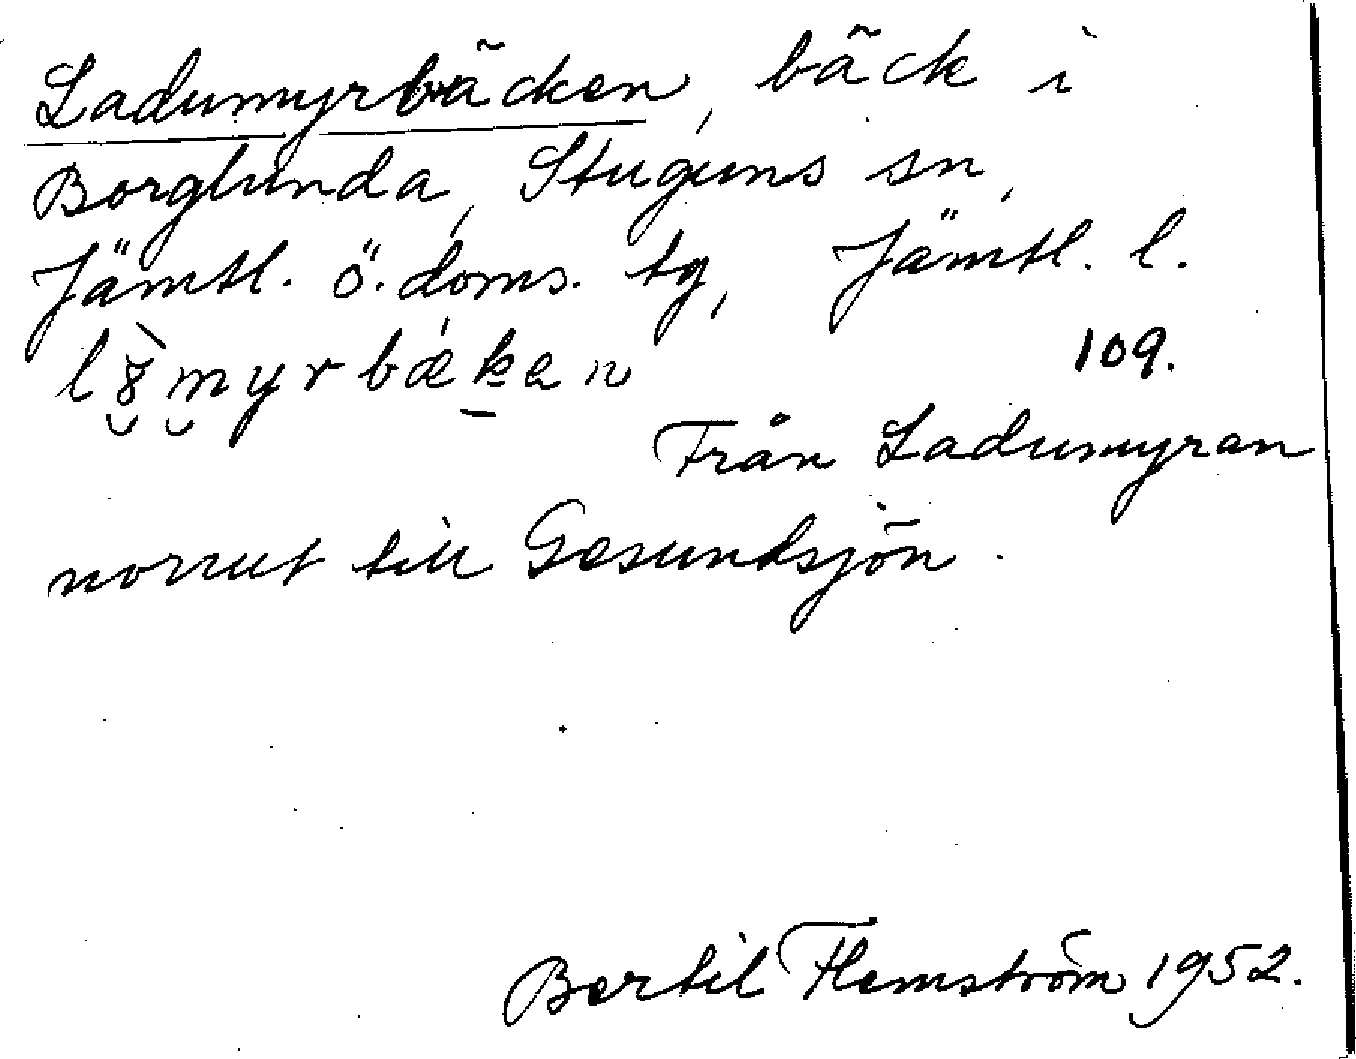 Ladumyrbäcken, bäck i
Borglunda, Stuguns sn,
Jämtl. ö. doms. tg, Jämtl. l.
109.
Från Ladumyran
norrut till Gesundsjön.
Bertil Flemström 1952.